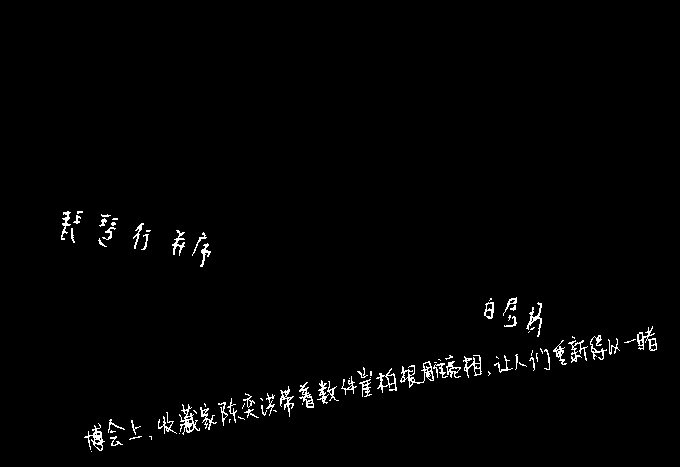 琵琶行 并序
白居易
博会上，收藏家陈奕洪带着数件崔柏银雕亮相，让人们重新得以一睹